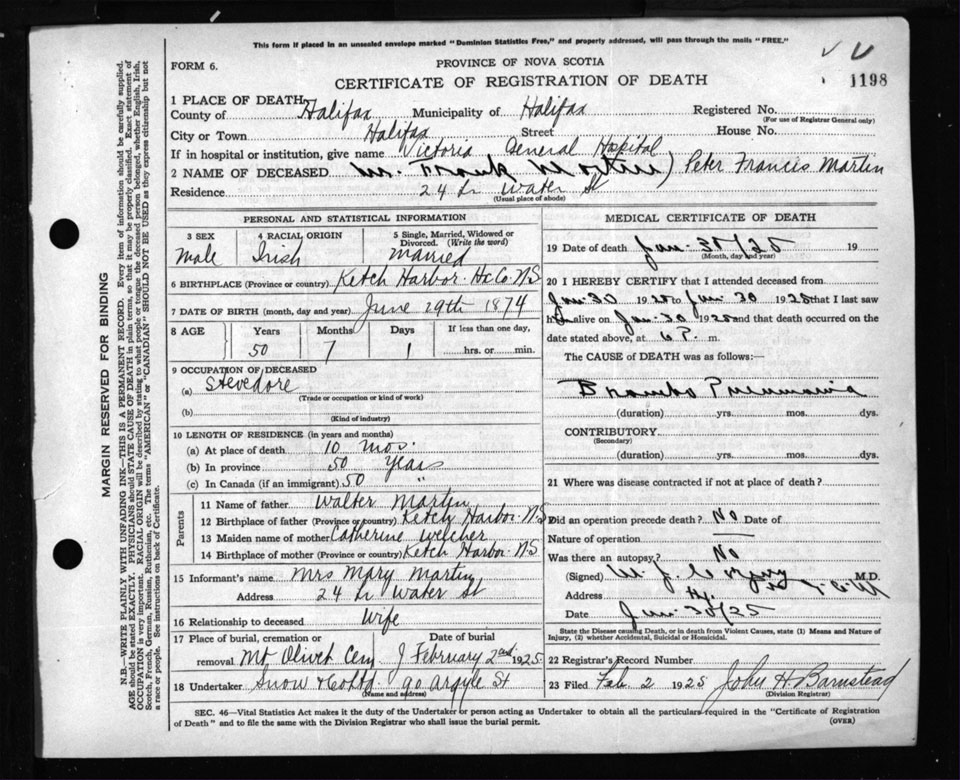 This form if placed in an unsealed envelope marked "Dominion Statistics Free," and properly addressed, will pass through the mails "FREE."
FORM 6.
PROVINCE OF NOVA SCOTIA
CERTIFICATE OF REGISTRATION OF DEATH
1198
1 PLACE OF DEATH
County of Halifax Municipality of Halifax Registered No.
(For use of Registrar General only)
City or Town Halifax Street House No.
If in hospital or institution, give name Victoria General Hospital
2 NAME OF DECEASED Mr. Frank Martin) Peter Francis Martin
Residence 24 Lr Water St
(Usual place of abode)
PERSONAL AND STATISTICAL INFORMATION
3 SEX Male
4 RACIAL ORIGIN Irish
5 Single, Married, Widowed or Divorced. (Write the word) Married
6 BIRTHPLACE (Province or country) Ketch Harbor Hx Co NS
7 DATE OF BIRTH (month, day and year) June 29th 1874
8 AGE Years Months Days If less than one day,
50 7 1 hrs. or min.
9 OCCUPATION OF DECEASED
(a) Stevedore
(Trade or occupation or kind of work)
(b)
(Kind of industry)
10 LENGTH OF RESIDENCE (in years and months)
(a) At place of death 10 mos.
(b) In province 50 years
(c) In Canada (if an immigrant) 50 "
Parents
11 Name of father Walter Martin
12 Birthplace of father (Province or country) Ketch Harbor N.S
13 Maiden name of mother Catherine Welcher
14 Birthplace of mother (Province or country) Ketch Harbor N.S
15 Informant's name Mrs Mary Martin
Address 24 Lr Water St
16 Relationship to deceased Wife
17 Place of burial, cremation or removal Mt Olivet Cem Date of burial February 2nd 1925
18 Undertaker Snow & Co Ltd 90 Argyle St
(Name and address)
MEDICAL CERTIFICATE OF DEATH
19 Date of death Jan-30/25 19
(Month, day and year)
20 I HEREBY CERTIFY that I attended deceased from
Jan 30 1925 to Jan 30 1925 that I last saw
him alive on Jan 30 1925 and that death occurred on the
date stated above, at 6 P. m.
The CAUSE of DEATH was as follows:—
Broncho Pneumonia
(duration) yrs. mos. dys.
CONTRIBUTORY
(Secondary)
(duration) yrs. mos. dys.
21 Where was disease contracted if not at place of death?
Did an operation precede death? No Date of
Nature of operation
Was there an autopsy? No
(Signed) M.D.
Address
Date Jan-30/25
State the Disease causing Death, or in death from Violent Causes, state (1) Means and Nature of
Injury, (2) whether Accidental, Suicidal or Homicidal.
22 Registrar's Record Number
23 Filed Feb 2 1925 John H. Barnstead
(Division Registrar)
SEC. 46—Vital Statistics Act makes it the duty of the Undertaker or person acting as Undertaker to obtain all the particulars required in the "Certificate of Registration
of Death" and to file the same with the Division Registrar who shall issue the burial permit.
(OVER)
MARGIN RESERVED FOR BINDING
N.B.—WRITE PLAINLY WITH UNFADING INK—THIS IS A PERMANENT RECORD. Every item of information should be carefully supplied.
AGE should be stated EXACTLY. PHYSICIANS should STATE CAUSE OF DEATH in plain terms, so that it may be properly classified. Exact statement of
OCCUPATION is very important. RACIAL ORIGIN will be described by stating to what people or tongue the deceased person belonged, whether English, Irish,
Scotch, French, German, Russian, Ruthenian, etc. The terms "AMERICAN" or "CANADIAN" SHOULD NOT BE USED as they express citizenship but not
a race or people. See instructions on back of Certificate.